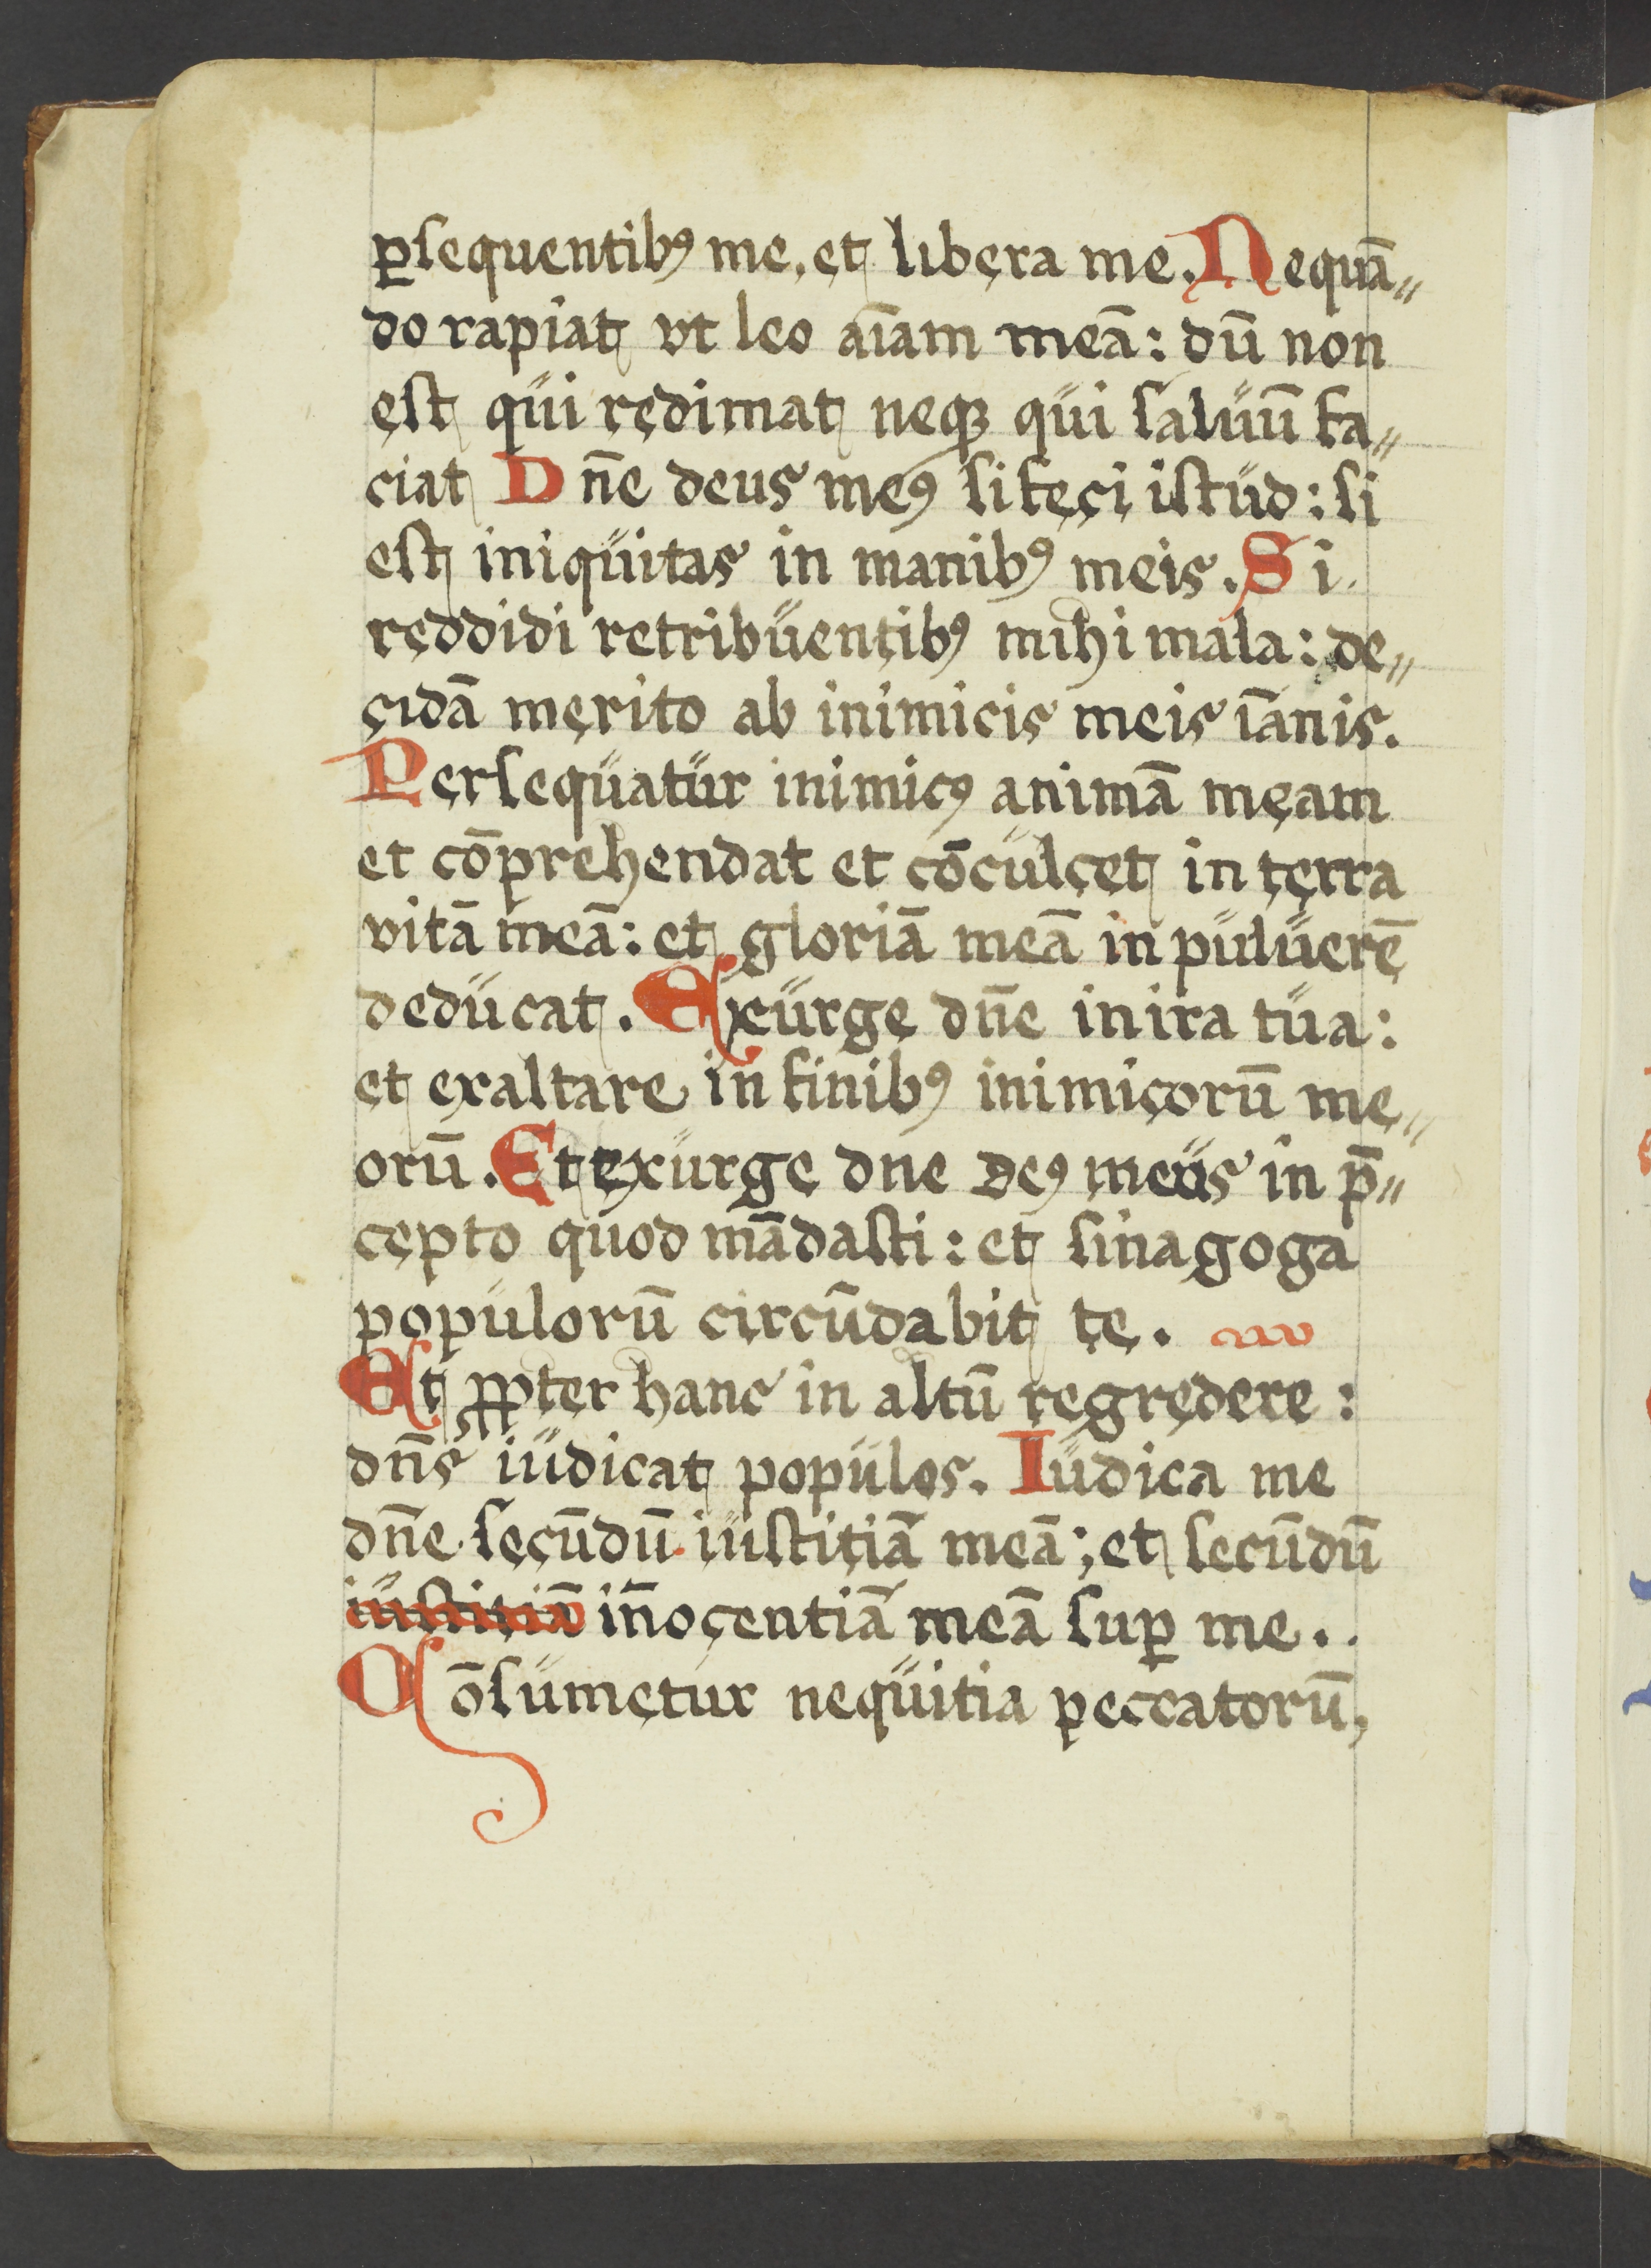 ꝑsequentibꝰ me, et libera me. Nequā-
do rapiat vt leo aīam meā: dū non
est qui redimat neqꝫ qui saluū fa-
ciat Dn̄e deus meꝰ si feci istud: si
est iniquitas in manibꝰ meis. Si
reddidi retribuentibꝰ mihi mala: de-
cidā merito ab inimicis meis iānis.
Persequatur inimicꝰ animā meam
et cōprehendat et cōculcet in terra
vitā meā: et gloriā meā in puluerē
deducat. Exurge dn̄e in ira tua:
et exaltare in finibꝰ inimicorū me-
orū. Et exurge dne deꝰ meus in p̄-
cepto quod mādasti: et sinagoga
populorū circūdabit te.
Et ꝓpter hanc in altū regredere:
dn̄s iudicat populos. Iudica me
dn̄e secūdū iustitiā meā; et secūdū
iustitiā in̄ocentiā meā suꝑ me..
Cōsumetur nequitia peccatorū,